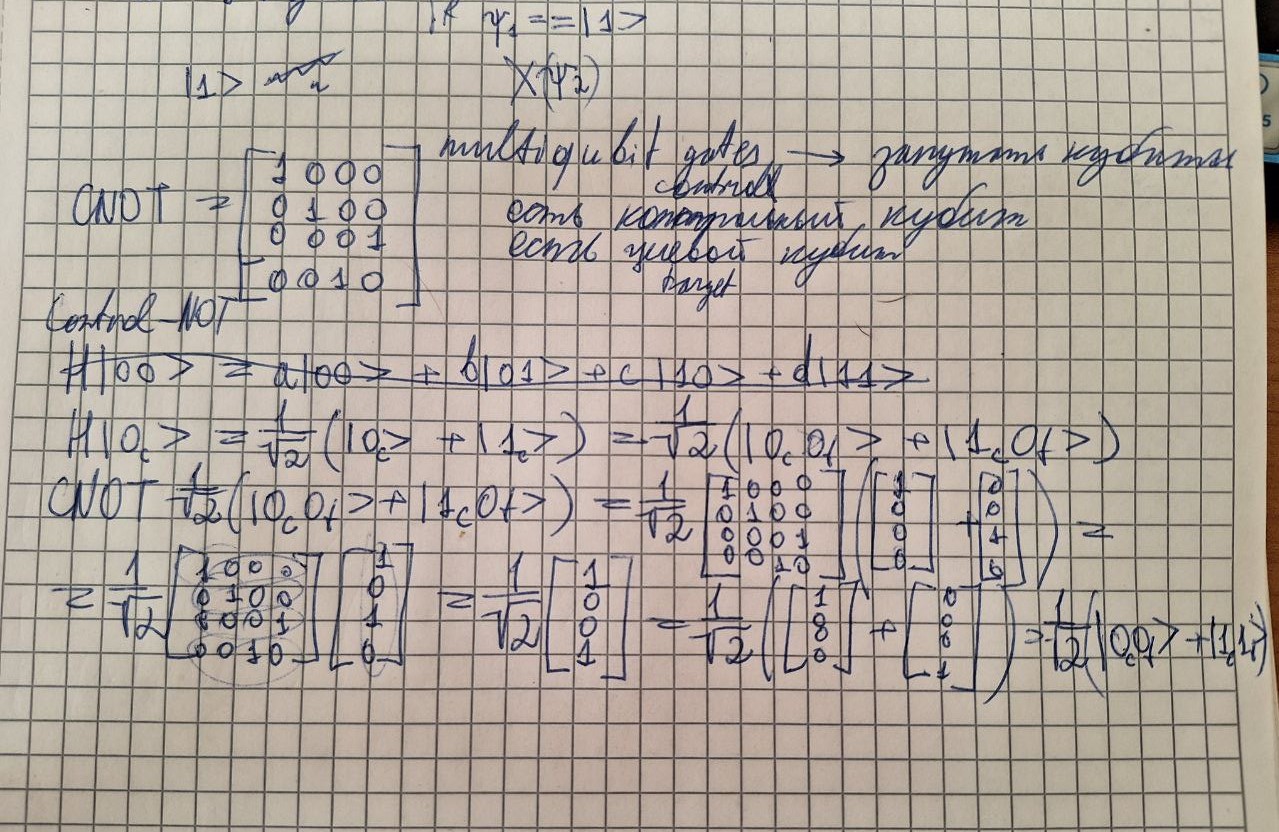 ψ₁ == |1>
|1> X(ψ₂)
multiqubit gates → запутать кубиты
control
CNOT = [1 0 0 0
0 1 0 0
0 0 0 1
0 0 1 0]
есть контрольный кубит
есть целевой кубит
target
Control-NOT
H|00> = a|00> + b|01> + c|10> + d|11>
H|0c> = 1/√2 (|0c> + |1c>) = 1/√2 (|0c0t> + |1c0t>)
CNOT 1/√2 (|0c0t> + |1c0t>) = 1/√2 [1 0 0 0; 0 1 0 0; 0 0 0 1; 0 0 1 0] ([1; 0; 0; 0] + [0; 0; 1; 0]) =
= 1/√2 [1 0 0 0; 0 1 0 0; 0 0 0 1; 0 0 1 0] [1; 0; 1; 0] = 1/√2 [1; 0; 0; 1] = 1/√2 ([1; 0; 0; 0] + [0; 0; 0; 1]) = 1/√2 (|0c0t> + |1c1t>)